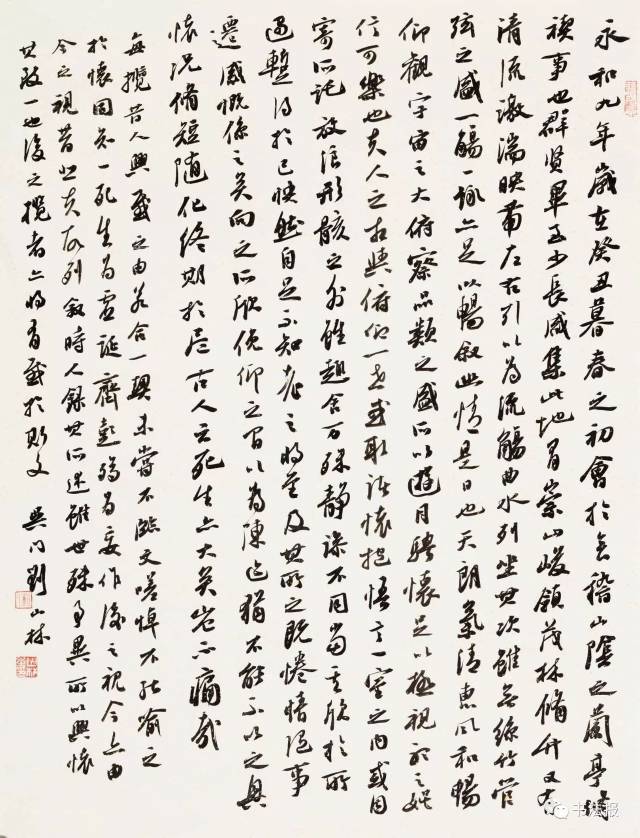 永和九年歲在癸丑暮春之初會於會稽山陰之蘭亭脩
禊事也群賢畢至少長咸集此地有崇山峻領茂林脩竹又有
清流激湍映帶左右引以為流觴曲水列坐其次雖無絲竹管
弦之盛一觴一詠亦足以暢敘幽情是日也天朗氣清惠風和暢
仰觀宇宙之大俯察品類之盛所以遊目騁懷足以極視聽之娛
信可樂也夫人之相與俯仰一世或取諸懷抱悟言一室之內或因
寄所託放浪形骸之外雖趣舍万殊靜躁不同當其欣於所
遇暫得於己快然自足不知老之將至及其所之既惓情隨事
遷感慨係之矣向之所欣俛仰之間以為陳迹猶不能不以之興
懷況脩短隨化終期於盡古人云死生亦大矣豈不痛哉
每攬昔人興感之由若合一契未嘗不臨文嗟悼不能喻之
於懷固知一死生為虛誕齊彭殤為妄作後之視今亦由
今之視昔悲夫故列敘時人錄其所述雖世殊事異所以興懷
其致一也後之攬者亦將有感於斯文 吳門劉山林
书法报